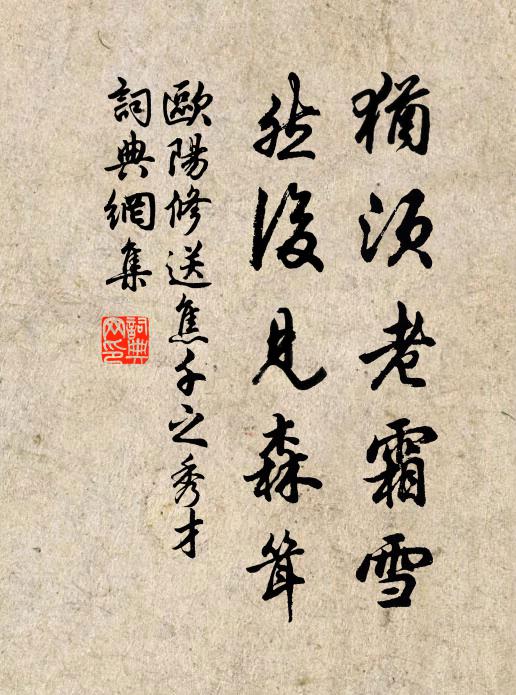 猶須老霜雪
然後見森聳
歐陽修送焦千之秀才
詞典網集
詞典網印